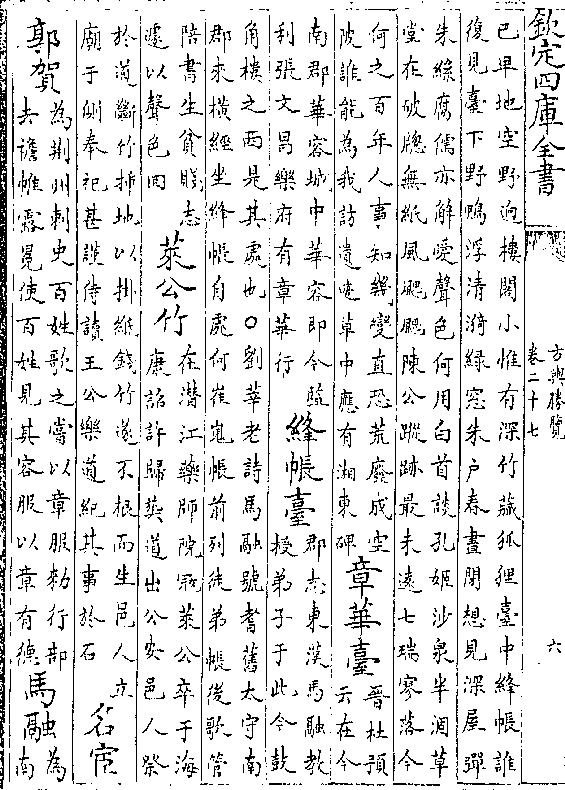 欽定四庫全書
方輿勝覽
卷二十七
六
已卑地空野迥樓閣小惟有深竹藏狐狸臺中絳帳誰
復見臺下野鴨浮清漪綠窓朱户春晝閉想見深屋彈
朱絲腐儒亦解愛聲色何用白首談孔姬沙泉半涸草
堂在破牕無紙風颸颸陳公蹤跡最未遠七瑞寥落今
何之百年人事知幾變直恐荒廢成空
陂誰能為我訪遺跡草中應有湘東碑
章華臺
晉杜預
云在今
南郡華容城中華容即今監
利張文昌樂府有章華行
絳帳臺
郡志東漢馬融教
授弟子于此今鼓
角樓之西是其處也○劉莘老詩馬融號耆舊太守南
郡來横經坐絳帳自處何崔嵬帳前列徒弟帳後歌管
陪書生貧賤志
遽以聲色囘
萊公竹
在潛江藥師院宼萊公卒于海
康詔許歸葬道出公安邑人祭
於道斷竹揷地以掛紙錢竹遂不根而生邑人立
廟于側奉祀甚謹侍讀王公樂道紀其事於石
名宦
郭賀
為荆州刺史百姓歌之嘗以章服勑行部
去襜帷露冕使百姓見其容服以章有德
馬融
為
南